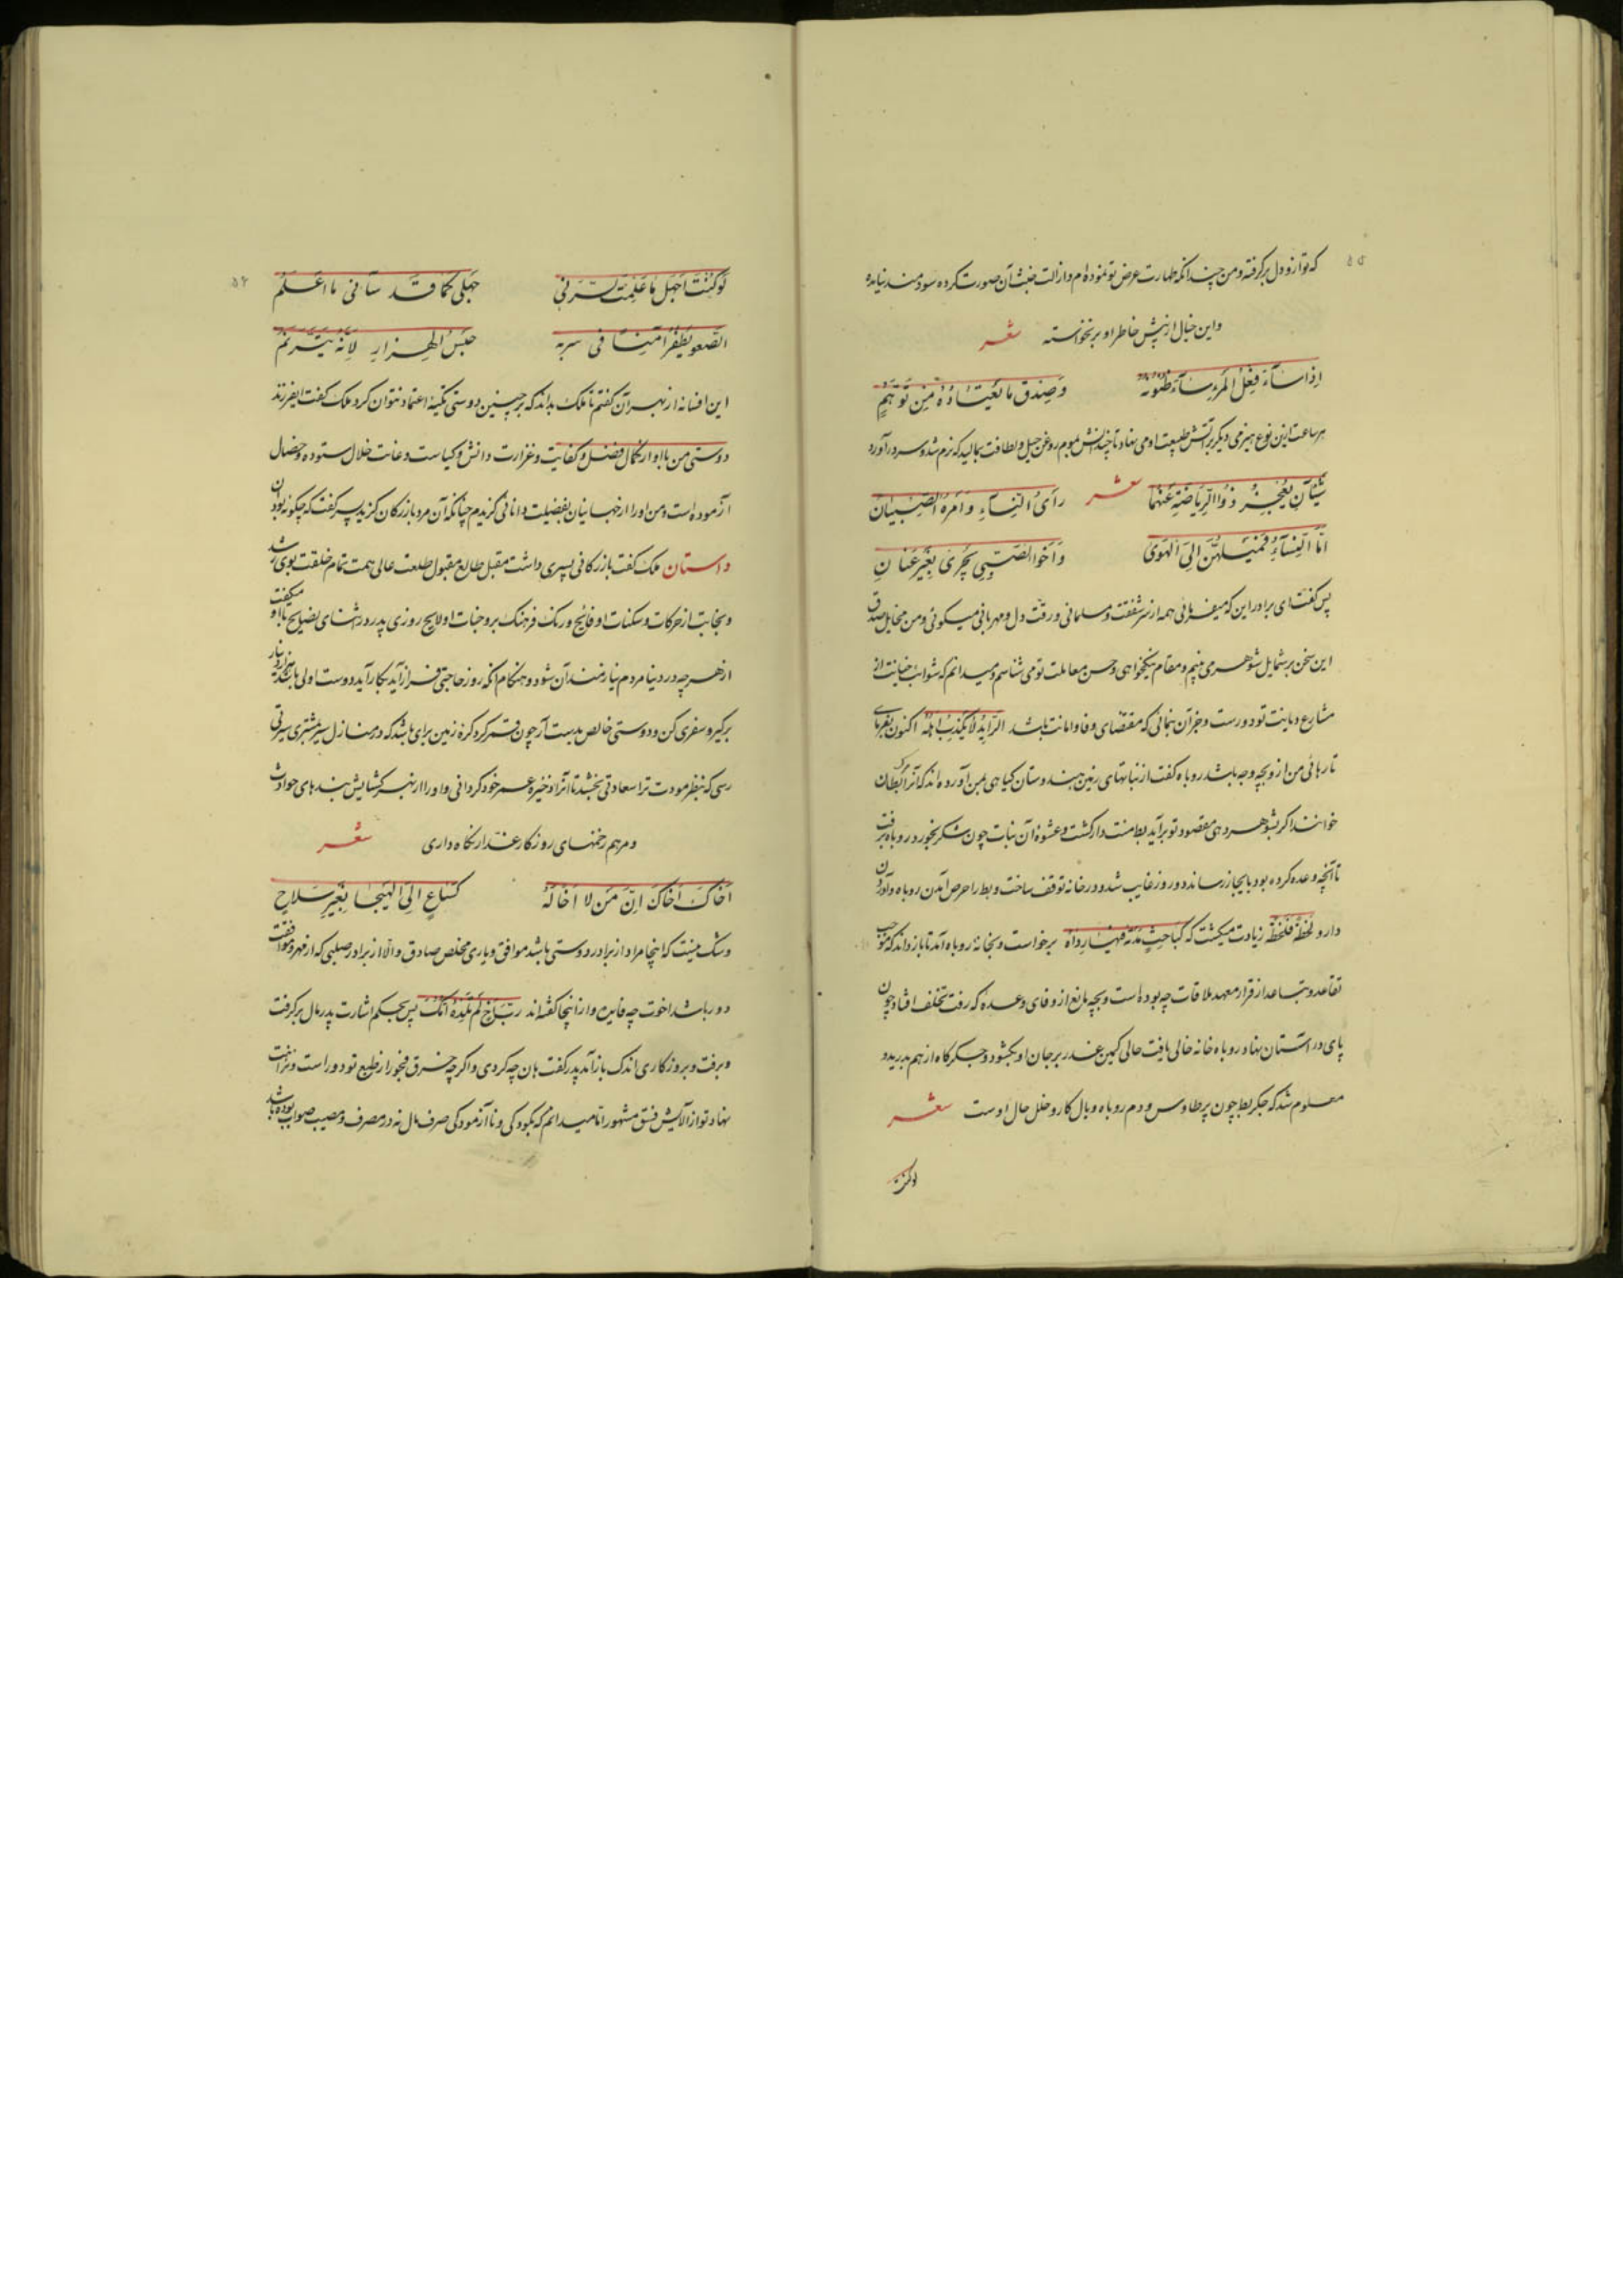 که تو ازو دل برگرفته و من چندانکه طهارت عرض تو نموده‌ام و ازالت خبث آن صورت کرده سودمند نیامده
و این خیال از پیش خاطر او برنخواسته شعر
اِذا سٰاءَ فِعْلُ المَرْءِ سٰاءَت ظُنُونُهُ وَصَدَّقَ مٰا یَعْتٰادُهُ مِن تَوَهُّمٍ
هر ساعت ازین نوع هیزمی دیگر بر آتش طبیعت او می نهاد تا چندانش بموم روغن حیل و لطافت بمالید که نرم شد و سر درآورد
شَیْئٰآنِ یَعْجِزُ ذُوا الرِّیٰاضَةِ عَنْهُمٰا شعر رَأیُ النِّسٰاءِ وَ اَمْرَهُ الصِّبْیٰانُ
اَمَّا النِّسٰاءُ فَمَیْلُهُنَّ اِلَی الْهَوَیٰ وَ اَخُوا الصِّبیٰ یَجْرِیٰ بِغَیْرِ عِنٰانِ
پس گفت ای برادر این که میفرمائی همه از سر شفقت و مسلمانی و رقت دل و مهربانی میگوئی و من مخایل صدق
این سخن بر شمایل شوهر می بینم و مقام نیکخواهی و حسن معاملت تو می شناسم و میدانم که شوایب خیانت از
مشارع دیانت تو دورست و جز آن ننمائی که مقتضای وفا و امانت باشد الرّایدُ لا یکذِبُ اهلَهُ اکنون بفرمای
تا رهائی من ازو بچه وجه باشد روباه گفت از نباتهای زمین هندوستان گیاهی بمن آورده اند که آنرا مرگ بطان
خوانند اگر بشوهر دهی مقصود تو برآید بط منت دار گشت و عشوهٔ آن نبات چون شکر بخورد روباه برفت
تا آنچه وعده کرده بود بایجاز رساند دو روز غایب شد و در خانه توقف ساخت و بط را حرص آمدن روباه و آوردن
دارو لَحْظَةً فَلَحْظَةً زیادت میگشت که کَبٰاحِثٍ مُدْیَةٍ فیهٰا رَداهُ برخواست و بخانه روباه آمد تا باز داند که موجب
تقاعد و تباعد از قرار معهد ملاقات چه بوده است و بچه مانع از وفای وعده که رفت تخلف افتاد چون
پای در آستان نهاد روباه خانه خالی یافت حالی کمین غدر بر جان او بگشود و جگرگاه از هم بدرید و
معلوم شد که جگر بط چون پر طاوس و دم روباه وبال کار و خلل حال اوست شعر
لو کنت
لَو کُنْتُ اَجْهَلُ مٰا عَلِمْتُ لَسَرَّنی جَهْلی کَمٰا قَد سٰآنی مٰا اَعْلَمُ
الصَّعو یَطْفَرُ آمِناً فی سربه حَبْسُ الهَزارِ لِاَنَّهُ یَتَرَنَّمُ
این افسانه از بهر آن گفتم تا ملک بداند که بر چنین دوستی تکیهٔ اعتماد نتوان کرد ملک گفت ایفرزند
دوستی من با او از کمال فضل و کفایت و غزارت دانش و کیاست و غایت خلال ستوده و خصال
آزموده است و من او را از جهانیان بفضیلت دانائی گزیدم چنانکه آن مرد بازرگان گزید پسر گفت که چگونه بود آن
داستان ملک گفت بازرگانی پسری داشت مقبل طالع مقبول طلعت عالی همت تمام خلقت بوی رشد
و نجابت از حرکات و سکنات او فایح و رنگ فرهنگ بر وجنات او لایح روزی پدر در اثنای نصایح با او میگفت
از هر چه در دنیا مردم نیازمند آن شود و هنگام آنکه روز حاجتی فراز آید بکار آید دوست اولی باشد هزار دینار
برگیر و سفری کن و دوستی خالص بدست آر چون قمر گرد کرهٔ زمین برآی باشد که در منازل سیر مشتری سیرتی
رسی که بنظر مودت ترا سعادتی بخشد تا آنرا ذخیرهٔ عمر خود گردانی و او را از بهر گشایش بندهای حوادث
و مرهم زخمهای روزگار غدار نگاه داری شعر
اَخٰاکَ اَخٰاکَ اِنَّ مَن لٰا اَخٰا لَهُ کَسٰاعٍ اِلَی الهَیْجٰا بِغَیْرِ سَلاحٍ
و شک نیست که اینجا مراد از برادر دوستی باشد موافق و یاری مخلص صادق و الا از برادر صلبی که از مهر و موافقت
دور باشد اخوت چه فایده و از اینجا گفته اند رُبَّ اَخٍ لَم تَلِدْهُ اُمُّکَ پس بحکم اشارت پدر مال برگرفت
و برفت و بروزگاری اندک باز آمد پدر گفت هان چه کردی و اگر چه خرق فجور از طبع تو دور است و نزاهت
نهاد تو از آلایش فسق مشهور اما میدانم که بکودکی و ناآزمودگی صرف مال نه در مصرف و مصیب صواب بوده باشد